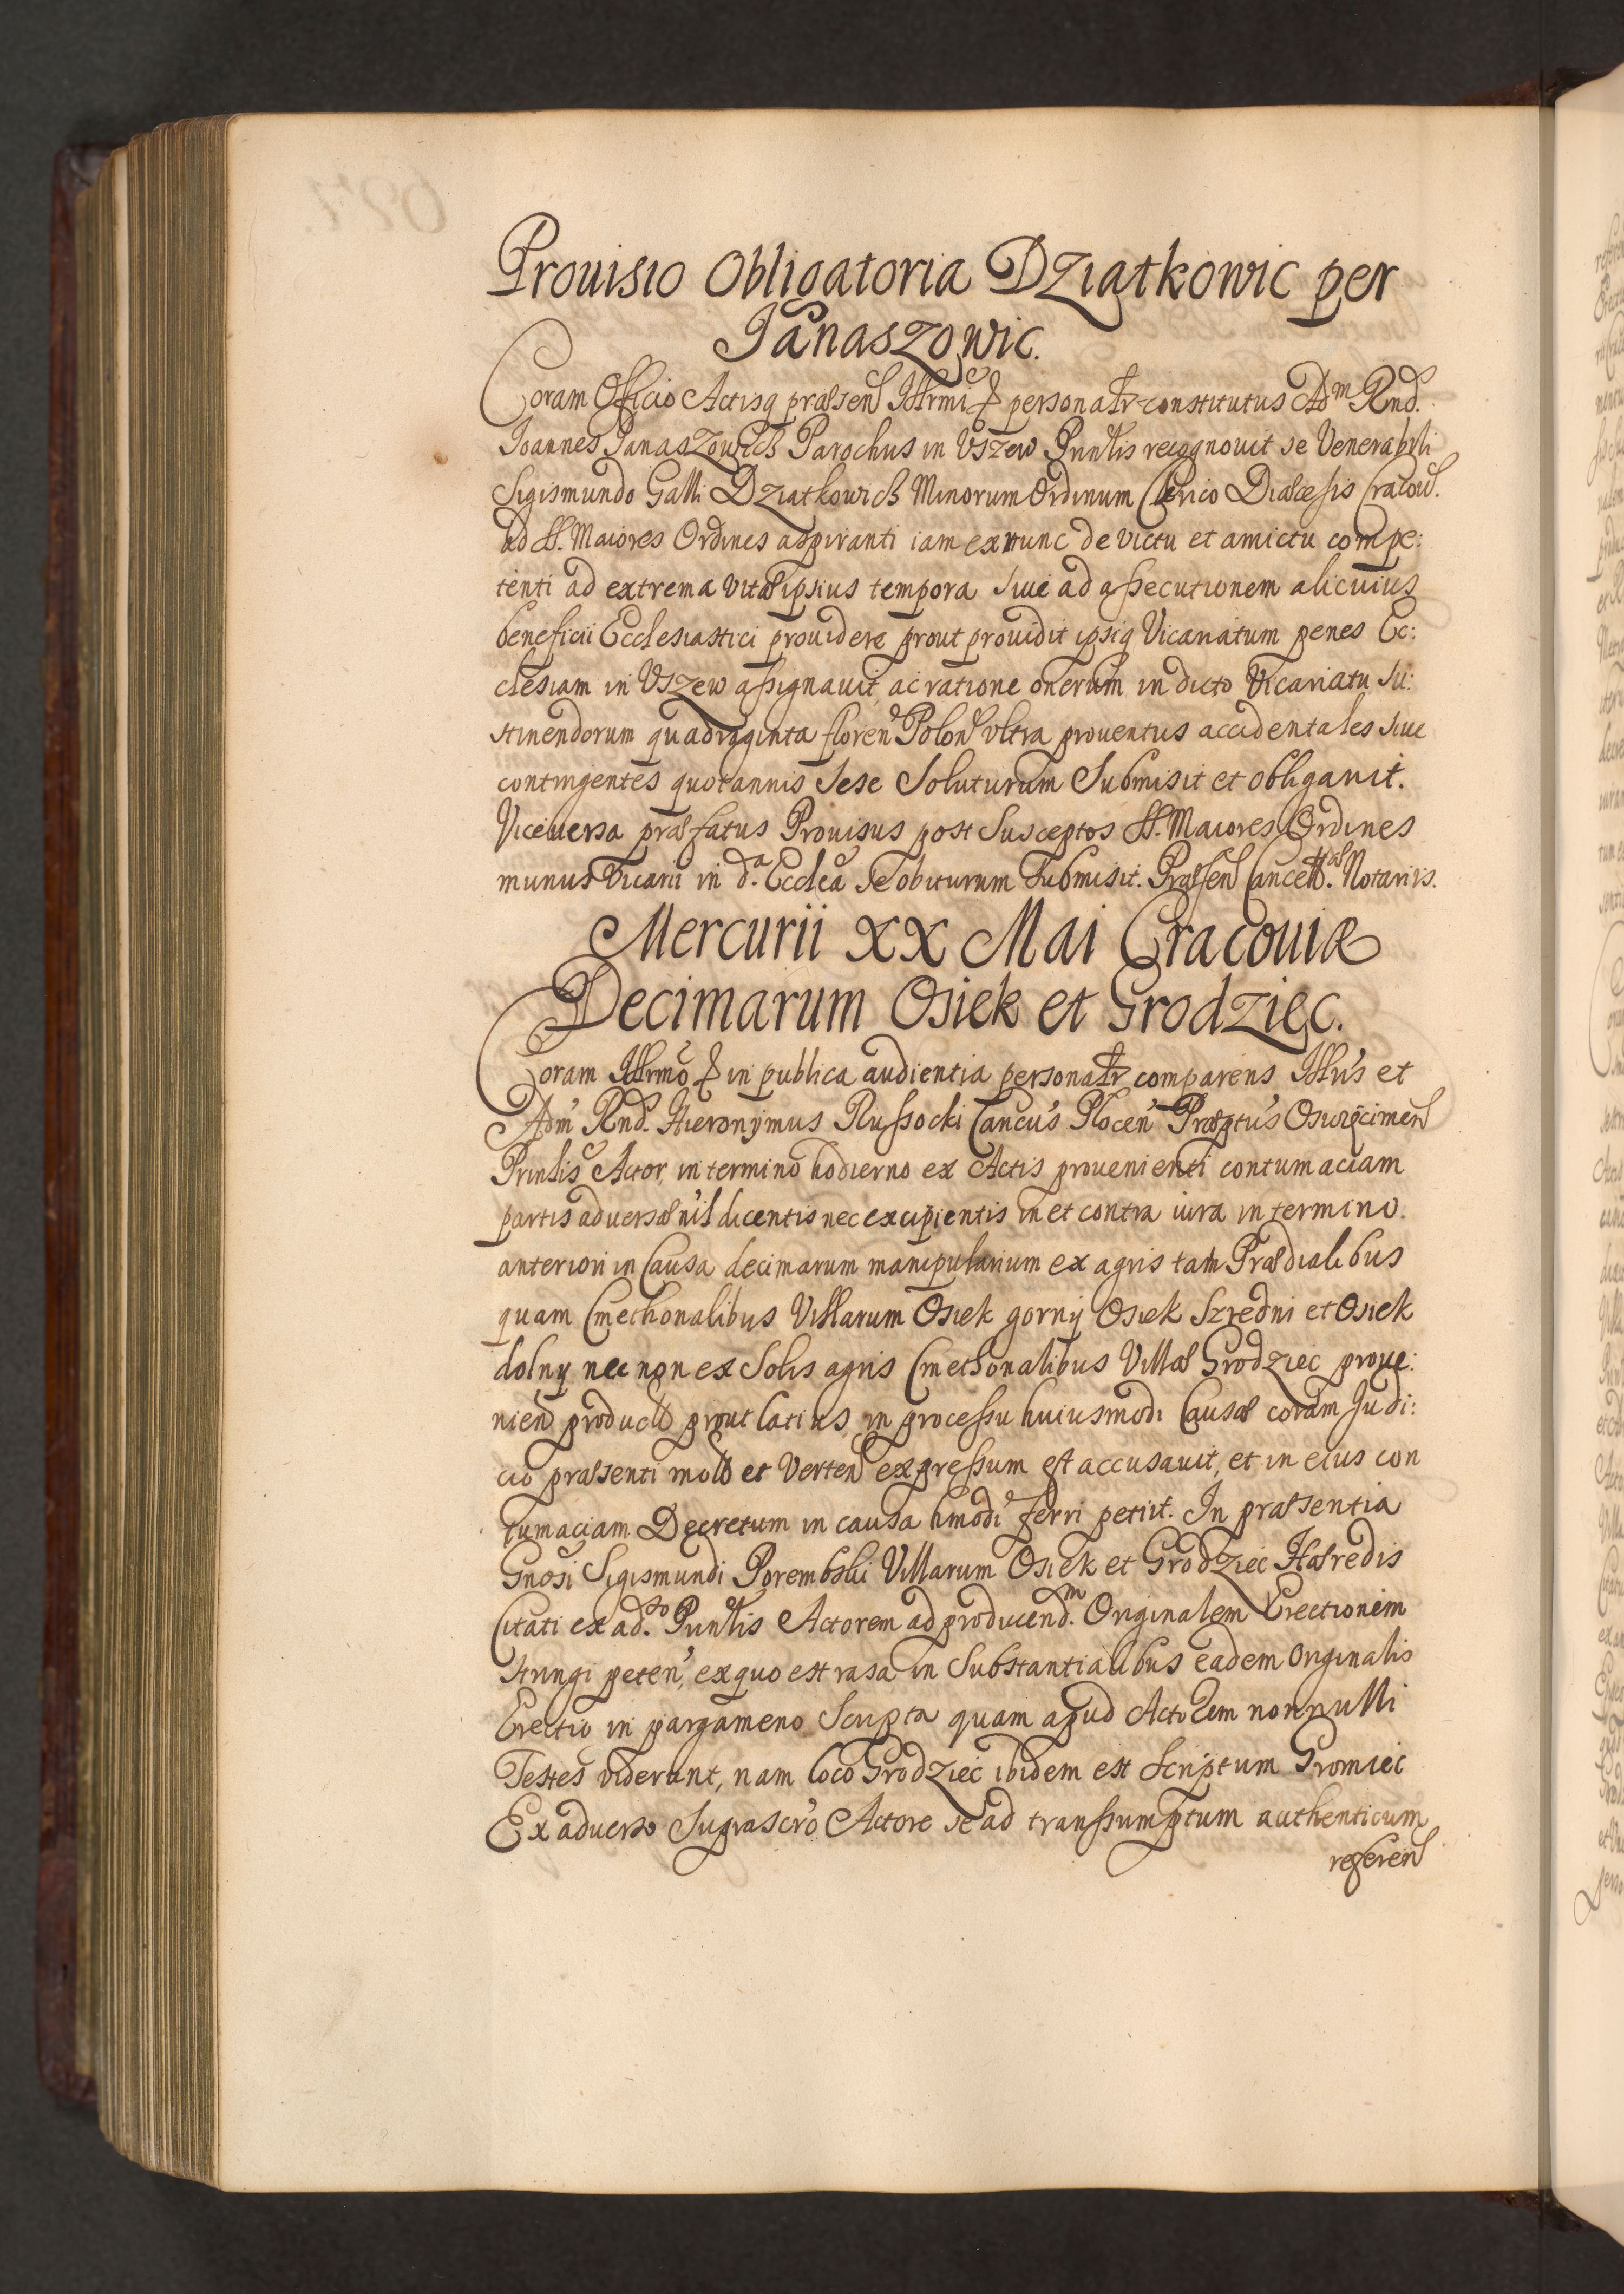 Prouisio Obligatoria Dziątkowic per
Janaszowic.
Coram Officio Actisq præsen Illrmi personalr constitutus Adm Rnd.
Joannes Janaszowich Parochus in Uszew Pnntis recognouit se Venerabili
Sigismundo Galli Dziatkowich Minorum Ordinum Clerico Diæcesis Cracow.
ad SS. Maiores Ordines aspiranti iam exnunc de victu et amictu compe:
tenti ad extrema vitæ ipsius tempora siue ad assecutionem alicuius
beneficii Ecclesiastici prouidere prout prouidit ipsiq Vicariatum penes Ec:
clesiam in Uszew assignauit, ac ratione onerum in dicto Vicariatu su:
stinendorum quadraginta floren Polon ultra prouentus accidentales siue
contingentes quotannis sese soluturum submisit et obligauit.
Viceuersa præfatus Prouisus post susceptos SS. Maiores Ordines
munus Vicarii in da. Ecclea se obiturum submisit. Præsen Cancell. Notariis.
Mercurii XX Mai Cracouiæ
Decimarum Osiek et Grodziec.
Coram Illrmo in publica audientia personalr comparens Illus et
Adm Rnd. Hieronymus Russocki Cancus Plocen Præptus Osuiecimen
Prinlis Actor, in termino hodierno ex Actis prouenienti contumaciam
partis aduersæ nil dicentis nec excipientis in et contra iura in termino.
anteriori in Causa decimarum manipularium ex agris tam Prædialibus
quam Cmethonalibus Villarum Osiek gorny Osiek Szredni et Osiek
dolny nec non ex solis agris Cmethonalibus Villæ Grodziec proue:
nien product prout latius in processu huiusmodi Causæ coram Judi:
cio præsenti mot et Verten expressum est accusauit, et in eius con
tumaciam Decretum in causa hmodi ferri petiit. In præsentia
Gnosi Sigismundi Porembski Villarum Osiek et Grodziec Hæredis
Citati ex ad.so Pnntis Actorem ad producend.m Originalem Erectionem
stringi peten, exquo est rasa in substantialibus eadem originalis
Erectio in pargameno scripta quam apud Actorem nonnulli
Testes viderunt, nam loco Grodziec ibidem est scriptum Gromiec
Ex aduerso suprascro Actore se ad transsumptum authenticum
referen